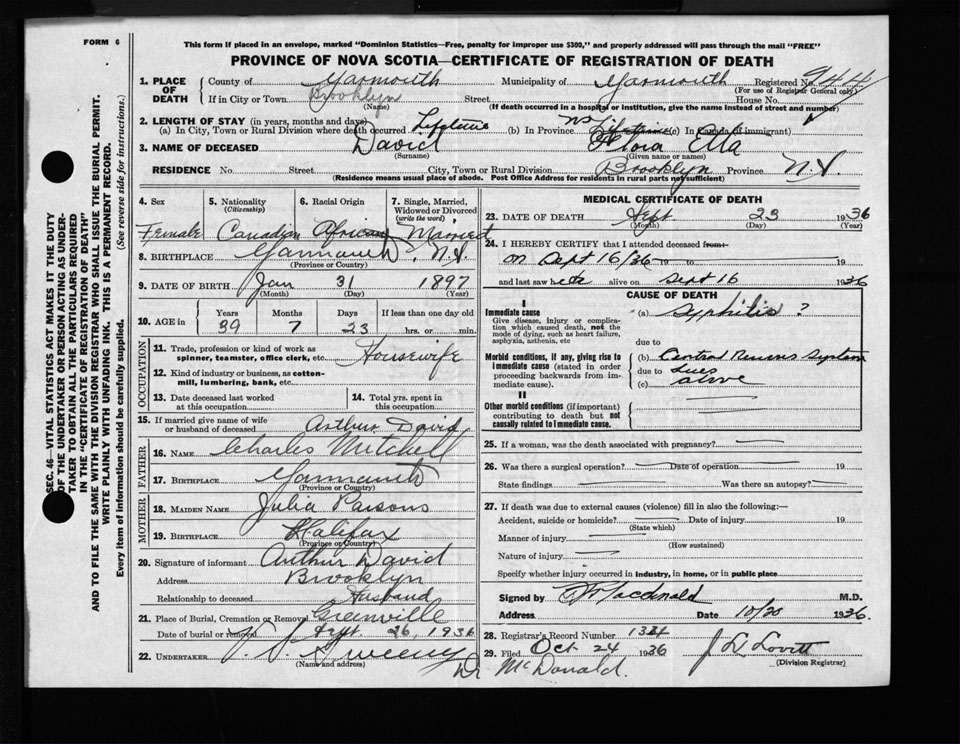 FORM 6
This form if placed in an envelope, marked "Dominion Statistics—Free, penalty for improper use $300," and properly addressed will pass through the mail "FREE"
PROVINCE OF NOVA SCOTIA—CERTIFICATE OF REGISTRATION OF DEATH
1. PLACE OF DEATH County of Yarmouth Municipality of Yarmouth Registered No. 944
(For use of Registrar General only)
If in City or Town Brooklyn Street House No.
(Name) (If death occurred in a hospital or institution, give the name instead of street and number)
2. LENGTH OF STAY (in years, months and days)
(a) In City, Town or Rural Division where death occurred Lifetime (b) In Province NS (c) In Canada (if immigrant)
3. NAME OF DECEASED David Flora Etta
(Surname) (Given name or names)
RESIDENCE No. Street City, Town or Rural Division Brooklyn Province N.S.
(Residence means usual place of abode. Post Office Address for residents in rural parts not sufficient)
4. Sex 5. Nationality (Citizenship) 6. Racial Origin 7. Single, Married, Widowed or Divorced (write the word)
Female Canadian African Married
8. BIRTHPLACE Yarmouth, N.S.
(Province or Country)
9. DATE OF BIRTH Jan 31 1897
(Month) (Day) (Year)
10. AGE in Years Months Days If less than one day old
39 7 23 hrs. or min.
OCCUPATION
11. Trade, profession or kind of work as spinner, teamster, office clerk, etc. Housewife
12. Kind of industry or business, as cotton-mill, lumbering, bank, etc.
13. Date deceased last worked at this occupation
14. Total yrs. spent in this occupation
15. If married give name of wife or husband of deceased Arthur David
FATHER
16. NAME Charles Mitchell
17. BIRTHPLACE Yarmouth
(Province or Country)
MOTHER
18. MAIDEN NAME Julia Parsons
19. BIRTHPLACE Halifax
(Province or Country)
20. Signature of informant Arthur David
Address Brooklyn
Relationship to deceased Husband
21. Place of Burial, Cremation or Removal Greenville
Date of burial or removal Sept 26, 1936
22. UNDERTAKER V. S. Sweeny
(Name and address)
Dr McDonald.
MEDICAL CERTIFICATE OF DEATH
23. DATE OF DEATH Sept 23 1936
(Month) (Day) (Year)
24. I HEREBY CERTIFY that I attended deceased from:
on Sept 16/36 19 to 19
and last saw her alive on Sept 16 1936
CAUSE OF DEATH
I
Immediate cause
Give disease, injury or complication which caused death, not the mode of dying, such as heart failure, asphyxia, asthenia, etc
(a) Syphilis ?
due to
Morbid conditions, if any, giving rise to immediate cause (stated in order proceeding backwards from immediate cause).
(b) Central Nervous System
due to Lues
(c) above
II
Other morbid conditions (if important) contributing to death but not causally related to immediate cause.
25. If a woman, was the death associated with pregnancy?
26. Was there a surgical operation? Date of operation 19
State findings Was there an autopsy?
27. If death was due to external causes (violence) fill in also the following:—
Accident, suicide or homicide? Date of injury 19
(State which)
Manner of injury
(How sustained)
Nature of injury
Specify whether injury occurred in industry, in home, or in public place
Signed by Macdonald M.D.
Address Date 10/20 1936.
28. Registrar's Record Number 1324
29. Filed Oct 24 1936 J L Lovitt
(Division Registrar)
SEC. 46—VITAL STATISTICS ACT MAKES IT THE DUTY
OF THE UNDERTAKER OR PERSON ACTING AS UNDERTAKER TO OBTAIN ALL THE PARTICULARS REQUIRED
IN THE "CERTIFICATE OF REGISTRATION OF DEATH"
AND TO FILE THE SAME WITH THE DIVISION REGISTRAR WHO SHALL ISSUE THE BURIAL PERMIT.
WRITE PLAINLY WITH UNFADING INK. THIS IS A PERMANENT RECORD.
Every item of information should be carefully supplied. (See reverse side for instructions.)